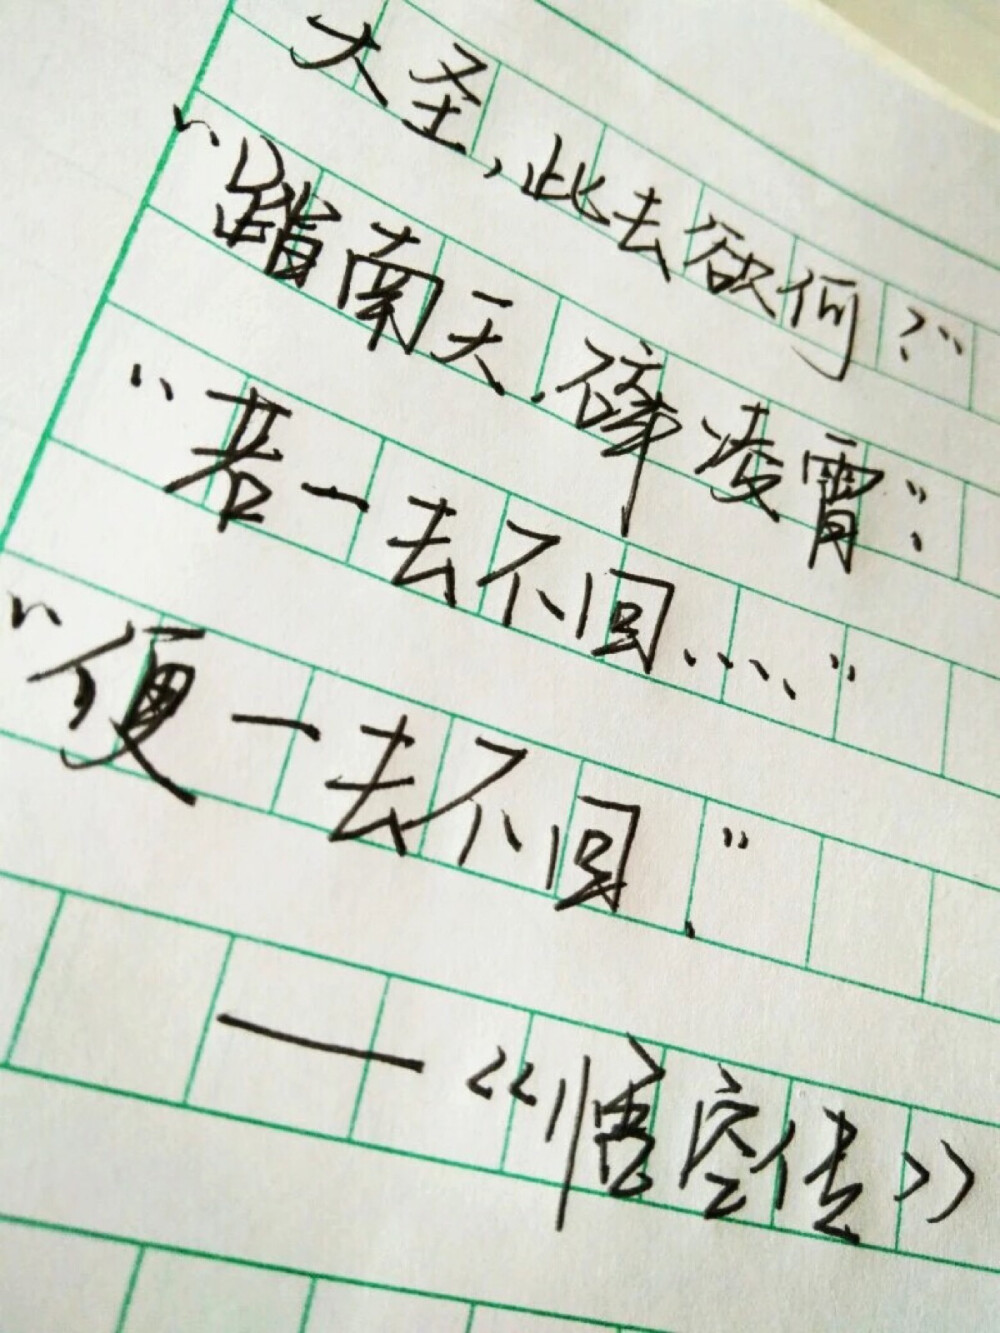 大圣,此去欲何?”
“踏南天,碎凌霄”.
“若一去不回....”
“便一去不回.”
——《悟空传》